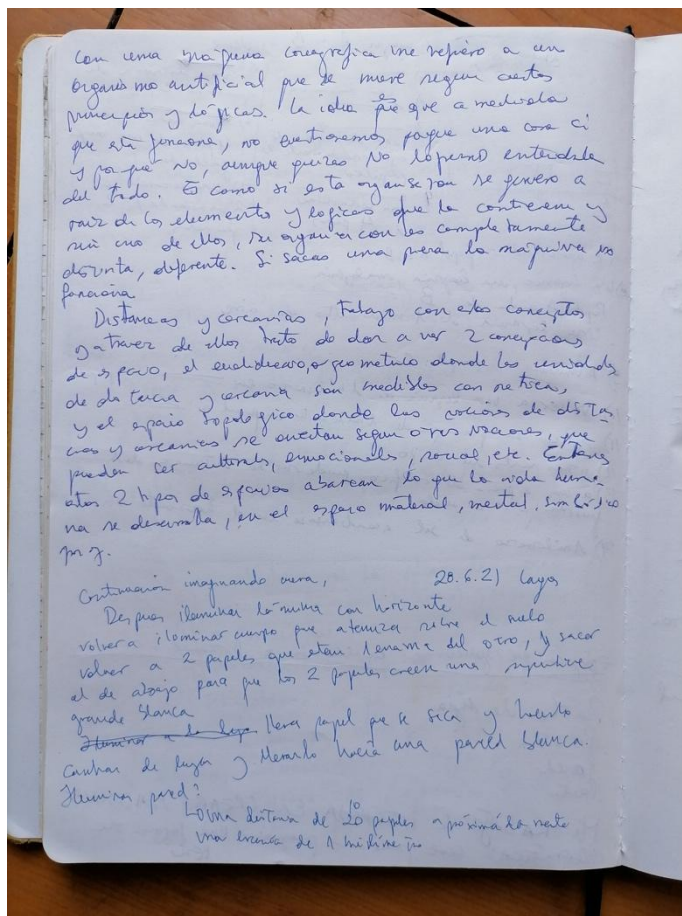 Con una máquina coreografica me refiero a un
organismo artificial que se mueve segun ciertos
principios y lógicas. La idea es que a medida
que esta funciona, no cuestionemos porque una cosa si
y por qué no, aunque quizas no logremos entenderla
del todo. Es como si esta organizacion se genero a
raiz de los elementos y logicas que la contienen y
sin uno de ellos, su organizacion es completamente
distinta, diferente. Si sacas una pieza la máquina no
funciona
Distancias y cercanias, trabajo con estos conceptos
y a travez de ellos trato de dar a ver 2 concepciones
de espacio, el euclideano, o geometrico donde las unidades
de distancia y cercania son medibles con metrica,
y el espacio topologico donde las nociones de distan
cias y cercanias se cuentan segun otras nociones, que
pueden ser culturales, emocionales, social, etc. Entonces
estos 2 tipos de espacios abarcan lo que la vida huma
na se desarrolla, en el espacio material, mental, simbólico
Continuación imaginando 28.6.21 Lagos
Despues iluminar lámina con horizonte
volver a iluminar cuerpo que aterriza sobre el suelo
volver a 2 papeles que estan encima del otro, y sacar
el de abajo para que los 2 papeles creen una superficie
grande blanca
Iluminar a lo lejos lleva papel que se seca y hacerlo
cambiar de lugar y llevarlo hacia una pared blanca.
Iluminar pared?
una distancia de 20 10 papeles aproximadamente
una de 1 milimetro